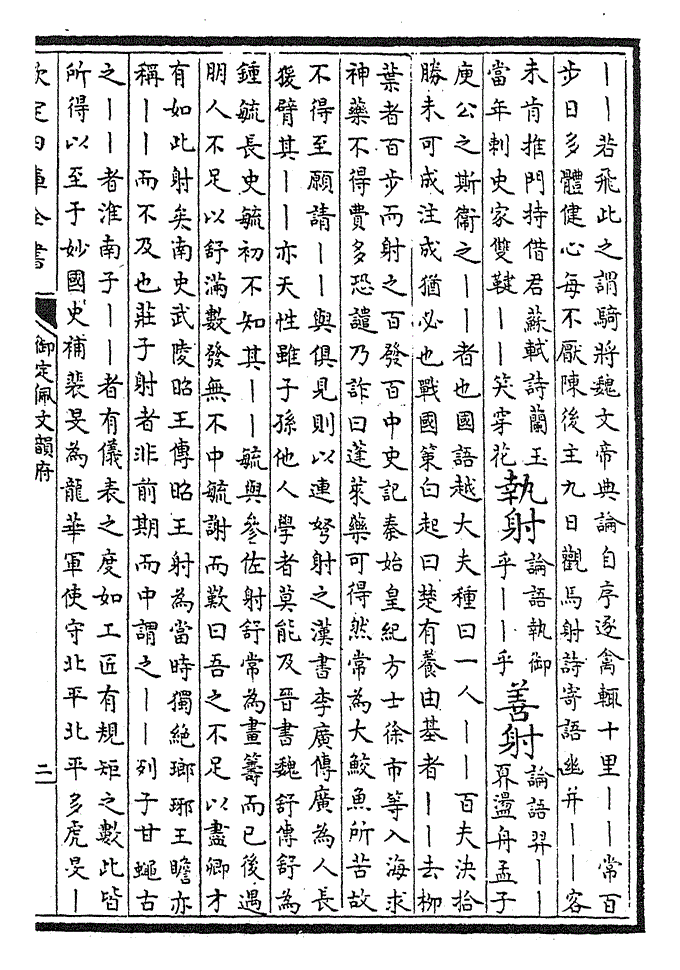 ｜｜若飛此之謂騎將魏文帝典論自序逐禽輒十里｜｜常百
步日多體健心每不厭陳後主九日觀馬射詩寄語幽并｜｜客
未肯推門持借君蘇軾詩蘭玉
當年刺史家雙鞬｜｜笑穿花
執射
論語執御
乎｜｜乎
善射
論語羿｜｜
奡盪舟孟子
庾公之斯衛之｜｜者也國語越大夫種曰一人｜｜百夫決拾
勝未可成注成猶必也戰國策白起曰楚有養由基者｜｜去柳
葉者百步而射之百發百中史記秦始皇紀方士徐市等入海求
神藥不得費多恐譴乃詐曰蓬萊藥可得然常為大鮫魚所苦故
不得至願請｜｜與俱見則以連弩射之漢書李廣傳廣為人長
猨臂其｜｜亦天性雖子孫他人學者莫能及晉書魏舒傳舒為
鍾毓長史毓初不知其｜｜毓與參佐射舒常為畫籌而已後遇
朋人不足以舒滿數發無不中毓謝而歎曰吾之不足以盡卿才
有如此射矣南史武陵昭王傳昭王射為當時獨絕瑯琊王瞻亦
稱｜｜而不及也莊子射者非前期而中謂之｜｜列子甘蠅古
之｜｜者淮南子｜｜者有儀表之度如工匠有規矩之數此皆
所得以至于妙國史補裴旻為龍華軍使守北平北平多虎旻｜
欽定四庫全書
御定佩文韻府
二